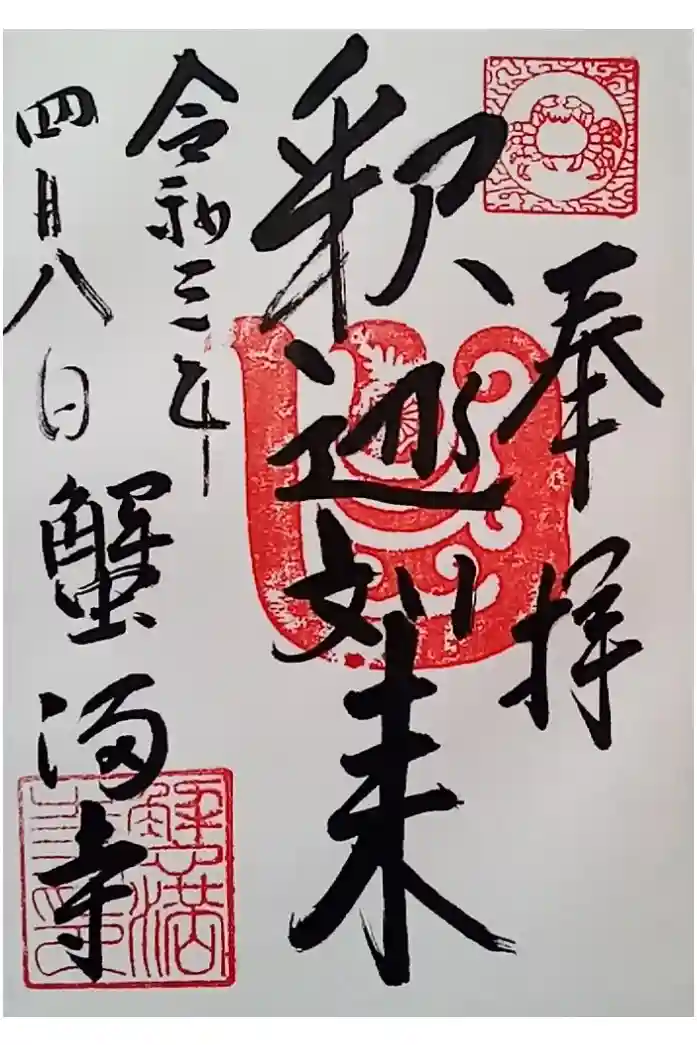 奉拝
釈迦如来
令和三年
四月八日
蟹満寺
蟹満寺印